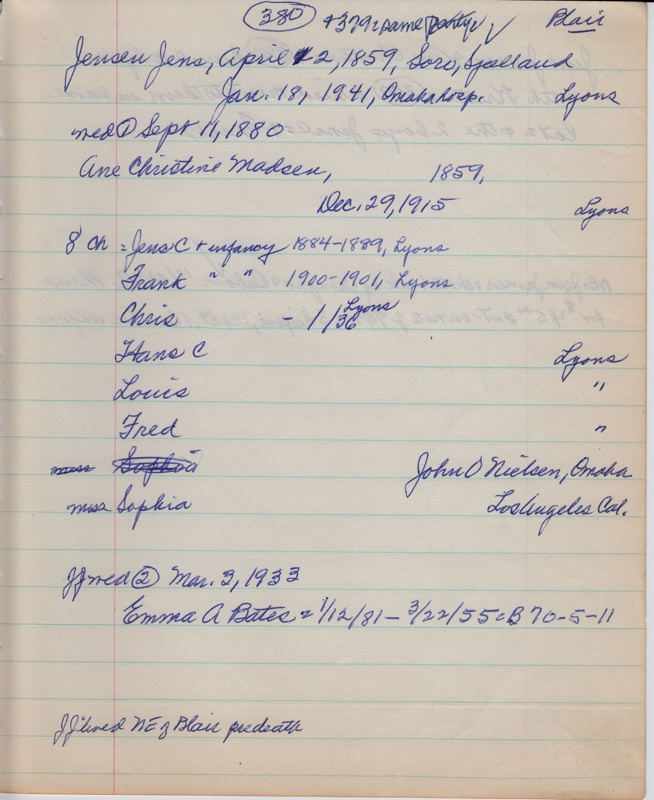 380 + 379 = same party ✓ Blair
Jensen Jens, April 2, 1859, Soro, Sjalland
Jan. 18, 1941, Omaha hosp. Lyons
med ① Sept 11, 1880
Ane Christine Madsen, 1859,
Dec. 29, 1915 Lyons
8 ch = Jens C + infancy 1884-1889, Lyons
Frank " " 1900-1901, Lyons
Chris - 1/1/36 Lyons
Hans C Lyons
Louis "
Fred "
John O Nielsen, Omaha
miss Sophia Los Angeles Cal.
JJ med ② Mar. 3, 1933
Emma A Bates = 1/12/81 - 3/22/55 = B 70-5-11
JJ lived NE of Blair predeath